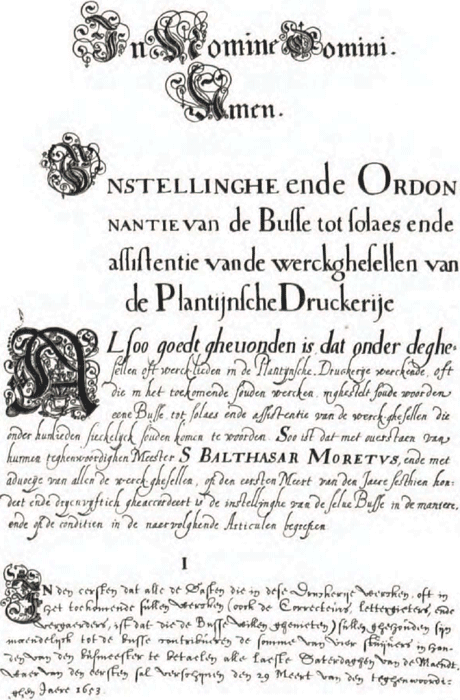 In Nomine Domini.
Amen.
INSTELLINGHE ende ORDON
NANTIE van de Busse tot solaes ende
assistentie van de werckghesellen van
de Plantijnsche Druckerije
ALsoo goedt ghevonden is dat onder deghe-
sellen oft wercklieden in de Plantynsche Druckerye werckende, oft
die in het toekomende souden wercken, inghestelt soude woorden
eene Busse, tot solaes ende assistentie van de werckghesellen die
onder hunlieden sieckelyck souden komen te woorden. Soo ist dat met overstaen van
hunnen teghenwoordighen Meester S BALTHASAR MORETVS, ende met
advoeye van allen de werckghesellen, op den eersten Meert van den Jaere sesthien hon-
dert ende dryenvyftich gheaccordeert is de instellinghe van de selve Busse in de maniere,
ende op de conditien in de naervolghende Articulen begrepen
I
IN den eersten dat alle de Gasten die in dese Druckerije wercken, oft in
het toekomende sullen wercken (oock de Correcteurs, lettergieters, ende
vergaerders, ist dat die de Busse willen ghenieten) sullen ghehouden syn
maendelijck tot de busse contribueren de somme van vier stuijvers, in han-
den van den busmeester te betaelen alle laeste Saterdaghen van de Maendt.
Waer van den eersten sal verschynen den 29 Meert van den teghenwoordi-
ghen Jaere 1653